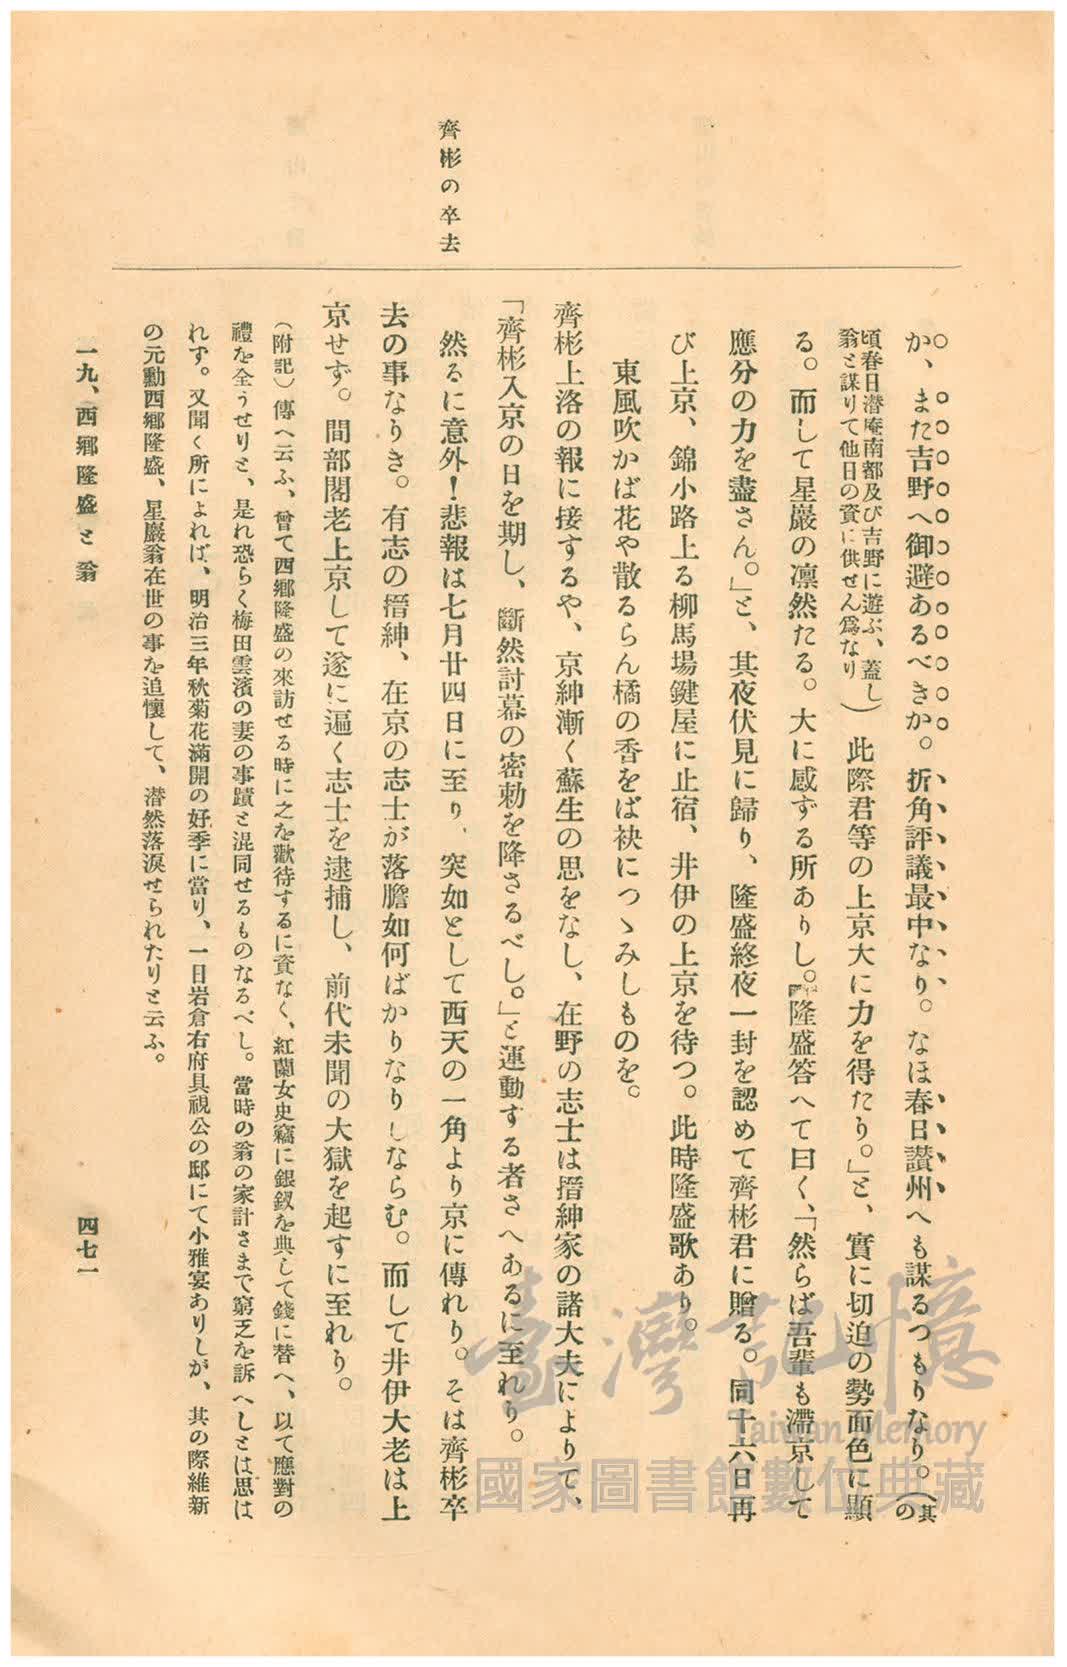 齊彬の卒去
か、また吉野へ御避あるべきか。折角評議最中なり。なほ春日讃州へも謀るつもりなり。(其の
頃春日潜庵南都及び吉野に遊ぶ、蓋し
翁と謀りて他日の資に供せん爲なり)此際君等の上京大に力を得たり。」と、實に切迫の勢面色に顯
る。而して星巖の凛然たる。大に感ずる所ありし。隆盛答へて曰く、「然らば吾輩も滯京して
應分の力を盡さん。」と、其夜伏見に歸り、隆盛終夜一封を認めて齊彬君に贈る。同十六日再
び上京、錦小路上る柳馬場鍵屋に止宿、井伊の上京を待つ。此時隆盛歌あり。
東風吹かば花や散るらん橘の香をば袂につゝみしものを。
齊彬上洛の報に接するや、京紳漸く蘇生の思をなし、在野の志士は搢紳家の諸大夫によりて、
「齊彬入京の日を期し、斷然討幕の密勅を降さるべし。」と運動する者さへあるに至れり。
然るに意外!悲報は七月廿四日に至り、突如として西天の一角より京に傳れり。そは齊彬卒
去の事なりき。有志の搢紳、在京の志士が落膽如何ばかりなりしならむ。而して井伊大老は上
京せず。間部閣老上京して遂に遍く志士を逮捕し、前代未聞の大獄を起すに至れり。
(附記)傳へ云ふ、曾て西郷隆盛の來訪せる時に之を歡待するに資なく、紅蘭女史竊に銀釵を典して錢に替へ、以て應對の
禮を全うせりと、是れ恐らく梅田雲濱の妻の事蹟と混同せるものなるべし。當時の翁の家計さまで窮乏を訴へしとは思は
れず。又聞く所によれば、明治三年秋菊花滿開の好季に當り、一日岩倉右府具視公の邸にて小雅宴ありしが、其の際維新
の元勳西郷隆盛、星巖翁在世の事を追懷して、潜然落淚せられたりと云ふ。
一九、西郷隆盛と翁
四七一
臺灣記憶
Taiwan Memory
國家圖書館數位典藏